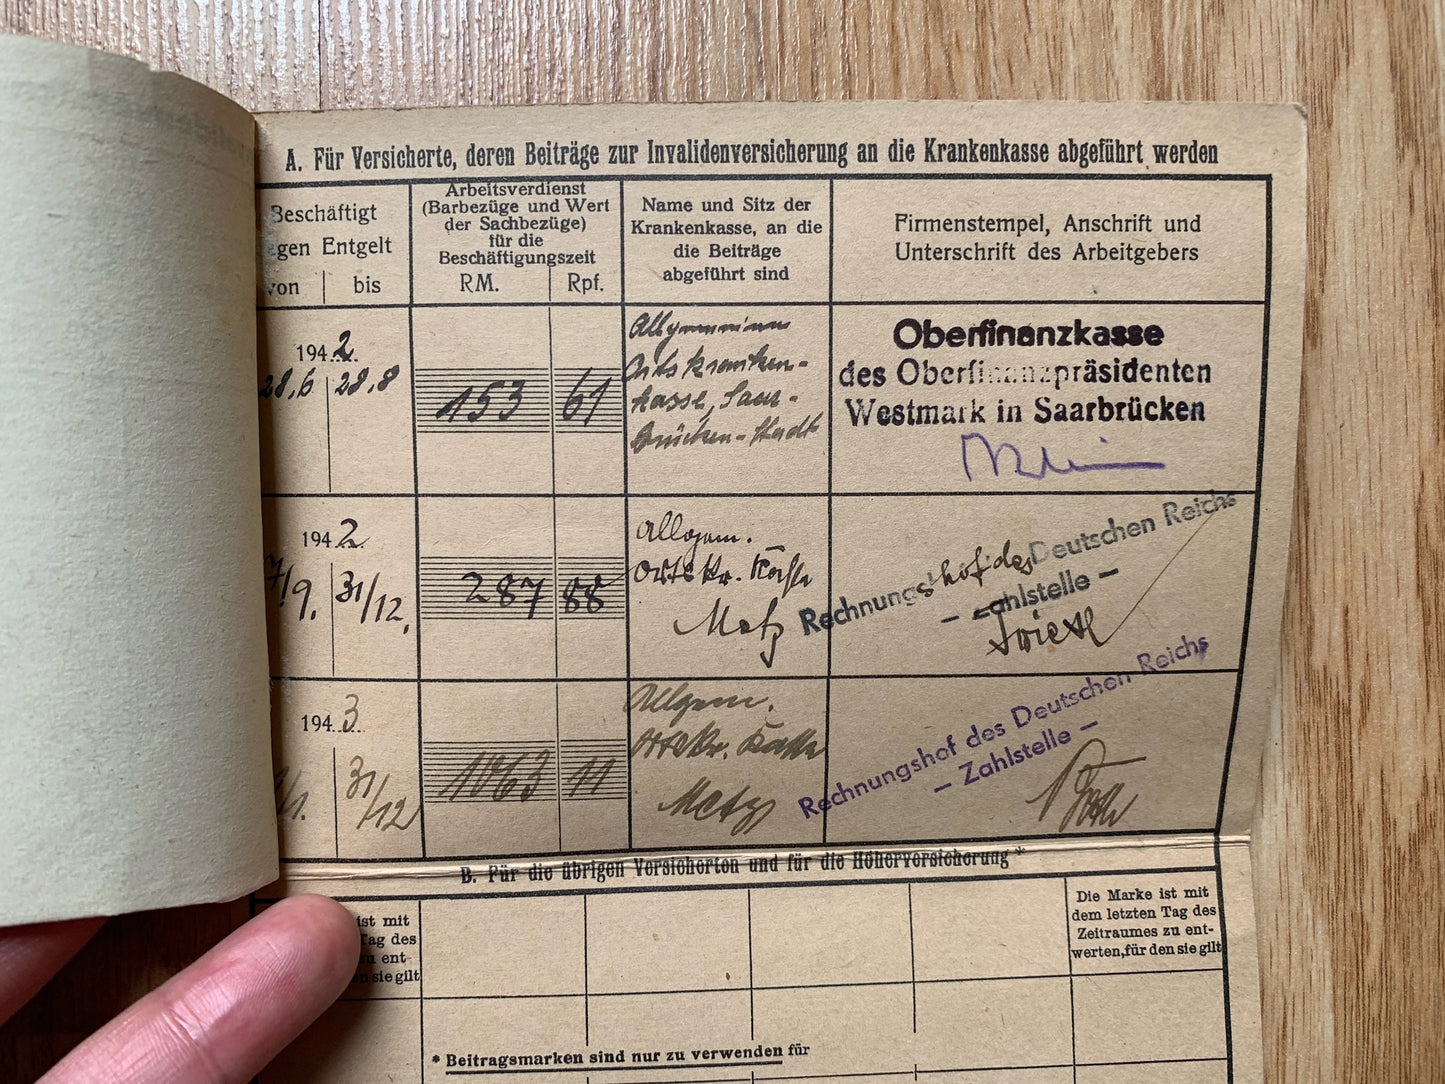 A. Für Versicherte, deren Beiträge zur Invalidenversicherung an die Krankenkasse abgeführt werden
Beschäftigt
gegen Entgelt
von bis
Arbeitsverdienst
(Barbezüge und Wert
der Sachbezüge)
für die
Beschäftigungszeit
RM. Rpf.
Name und Sitz der
Krankenkasse, an die
die Beiträge
abgeführt sind
Firmenstempel, Anschrift und
Unterschrift des Arbeitgebers
1942
28,6 28,8
153 61
Allgemeine
Ortskranken-
kasse, Saar-
brücken-Stadt
Oberfinanzkasse
des Oberfinanzpräsidenten
Westmark in Saarbrücken
1942
7/9. 31/12.
287 88
Allgem.
Ortskr. Kasse
Metz
Rechnungshof des Deutschen Reichs
— Zahlstelle —
1943
1/1. 31/12
1063 11
Allgem.
Ortskr. Kasse
Metz
Rechnungshof des Deutschen Reichs
— Zahlstelle —
B. Für die übrigen Versicherten und für die Höherversicherung *
ist mit
Tag des
zu ent-
den sie gilt
Die Marke ist mit
dem letzten Tag des
Zeitraumes zu ent-
werten, für den sie gilt
* Beitragsmarken sind nur zu verwenden für